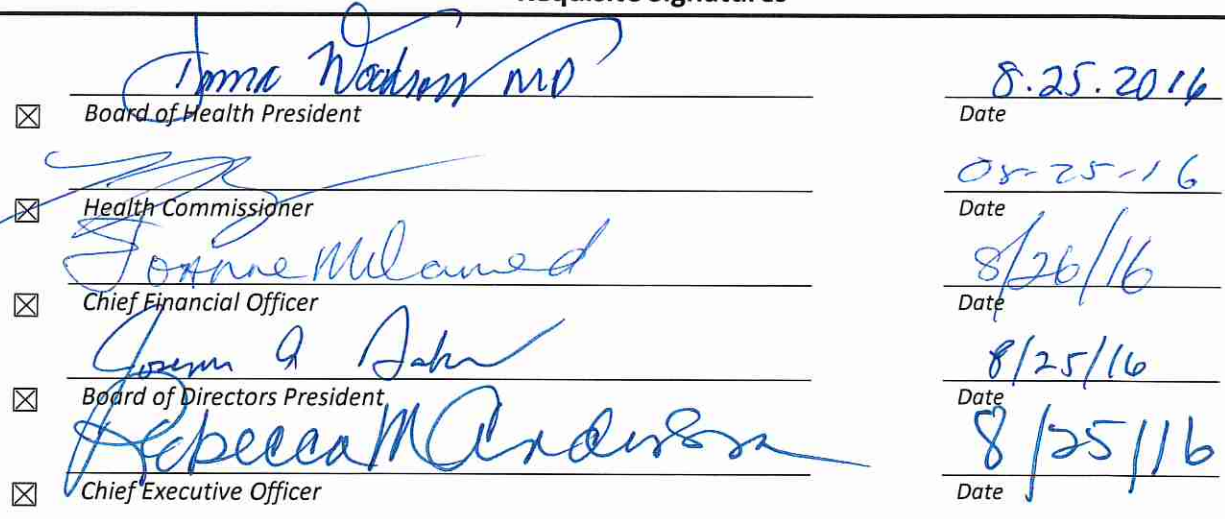 Requisite Signatures
Woodson MD 8.25.2016
☒ Board of Health President Date
08-25-16
☒ Health Commissioner Date
Joanne Melamed 8/26/16
☒ Chief Financial Officer Date
Joseph 8/25/16
☒ Board of Directors President Date
Rebecca M Anderson 8/25/16
☒ Chief Executive Officer Date